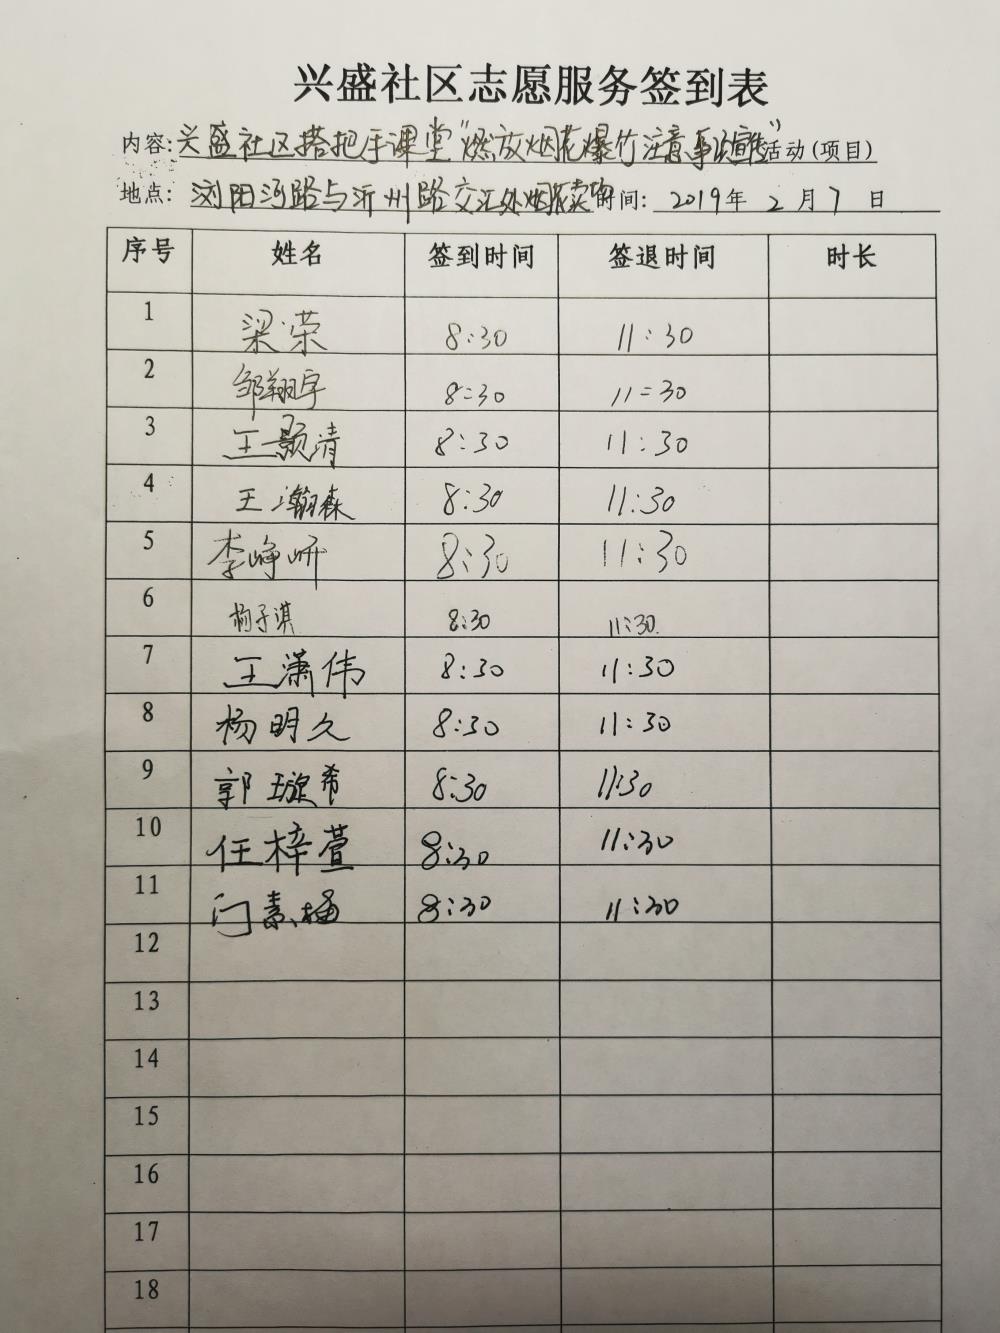 兴盛社区志愿服务签到表
内容:兴盛社区搭把手课堂"燃放烟花爆竹注意事项宣传"活动(项目)
地点:浏阳河路与沂州路交汇处烟花卖 时间: 2019年 2 月 7 日
序号 姓名 签到时间 签退时间 时长
1 梁荣 8:30 11:30
2 邹翔宇 8:30 11:30
3 王颢清 8:30 11:30
4 王瀚森 8:30 11:30
5 李峥岍 8:30 11:30
6 杨子淇 8:30 11:30
7 王潇伟 8:30 11:30
8 杨明久 8:30 11:30
9 郭璇希 8:30 11:30
10 任梓萱 8:30 11:30
11 闫素 8:30 11:30
12
13
14
15
16
17
18